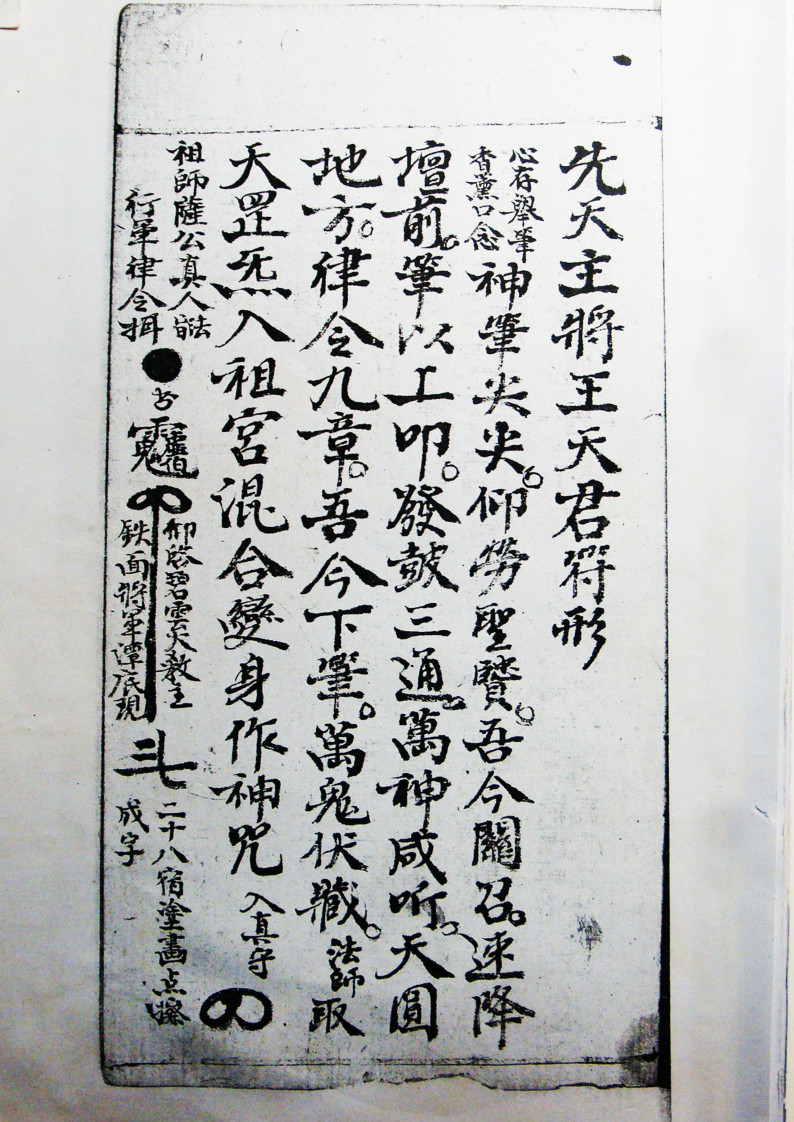 先天主將王天君符形
心存舉筆
香薰口念
神筆尖尖。仰勞聖賢。吾今關召。速降
壇前。筆以工叩。發鼓三通。萬神咸听。天圓
地方。律令九章。吾今下筆。萬鬼伏藏。法師取
天罡炁入祖宮混合變身作神咒入真守
祖師薩公真人
行軍律令
仰啓碧霄教主
鉄面將軍潭底現
二十八宿塗畵点擦
成字